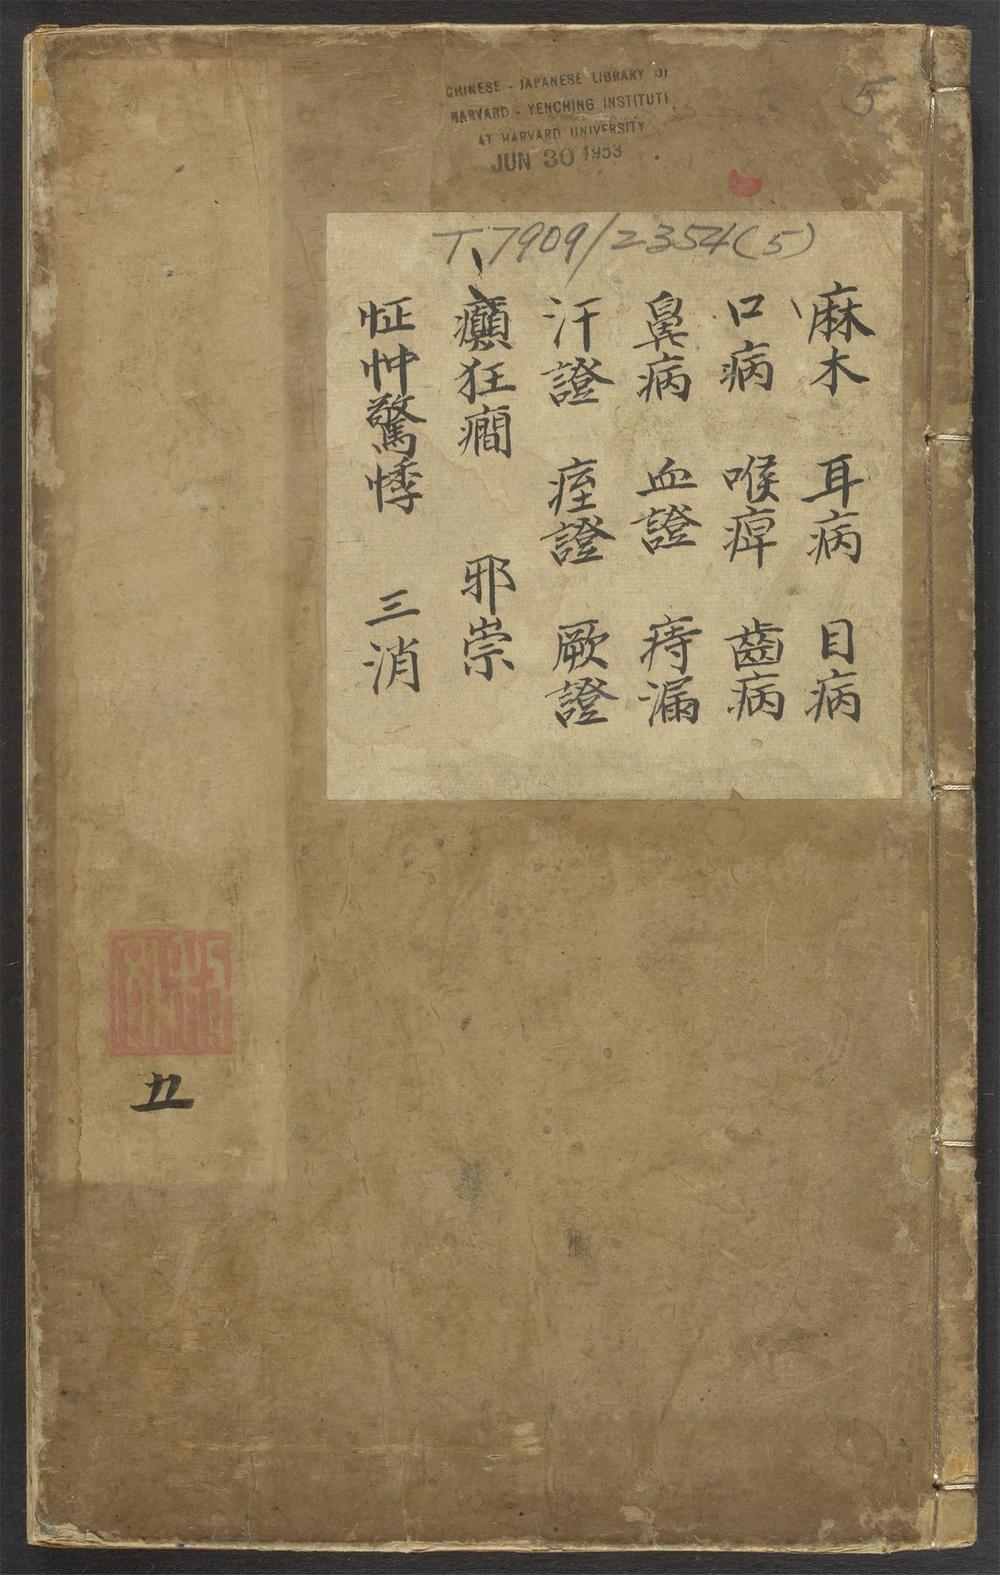 CHINESE - JAPANESE LIBRARY OF
HARVARD - YENCHING INSTITUTE
AT HARVARD UNIVERSITY
JUN 30 1953
5
T 7909/2354(5)
麻木 耳病 目病
口病 喉痺 齒病
鼻病 血證 痔漏
汗證 痓證 厥證
癲狂癇 邪祟
怔忡驚悸 三消
五